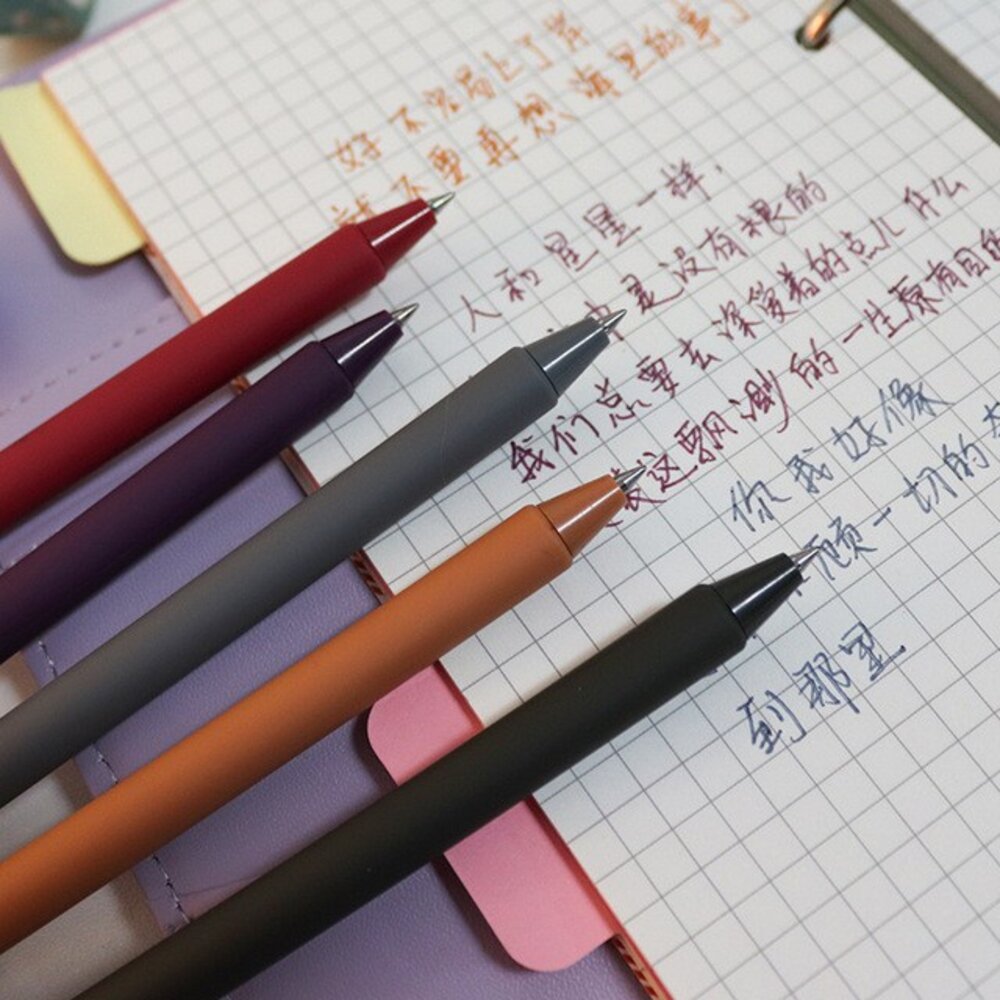 好不容易上了岸
就不要再想海里的事了
人和星星一样,
中是没有根的
我们总要去深爱着的点儿什么
这飘渺的一生原有目的
你我好像
顾一切的
到那里